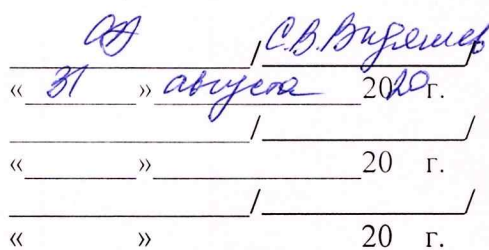 / С.В. Видяшев /
« 31 » августа 2020 г.
/ /
« » 20 г.
/ /
« » 20 г.